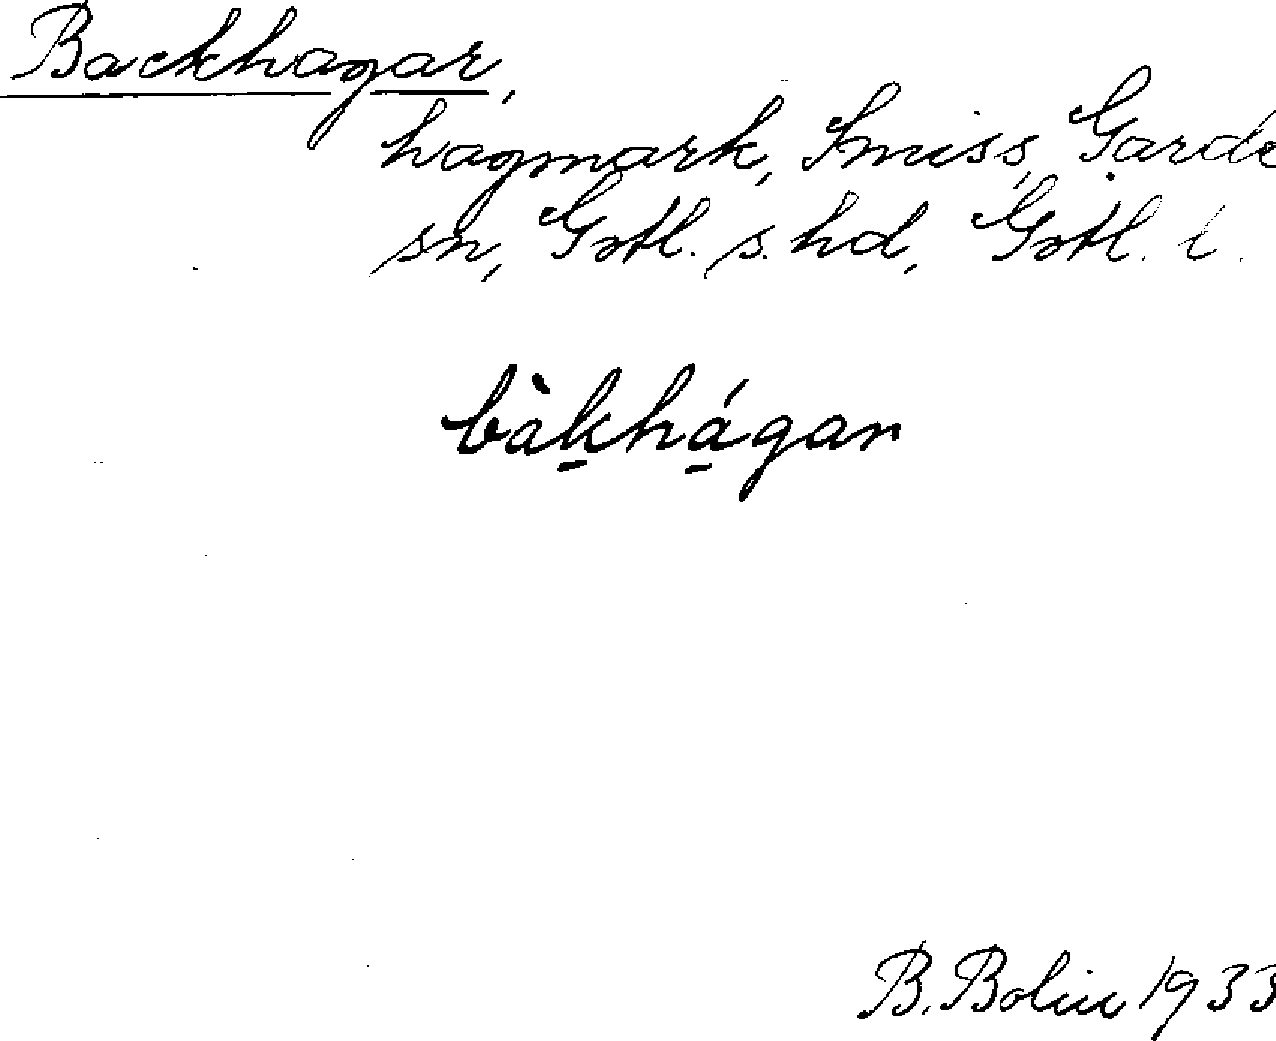 Backhagar,
hagmark, Smiss, Garde
sn, Gotl. s. hd, Gotl. l.
bàk̠há̠gar
B. Bolin 1933